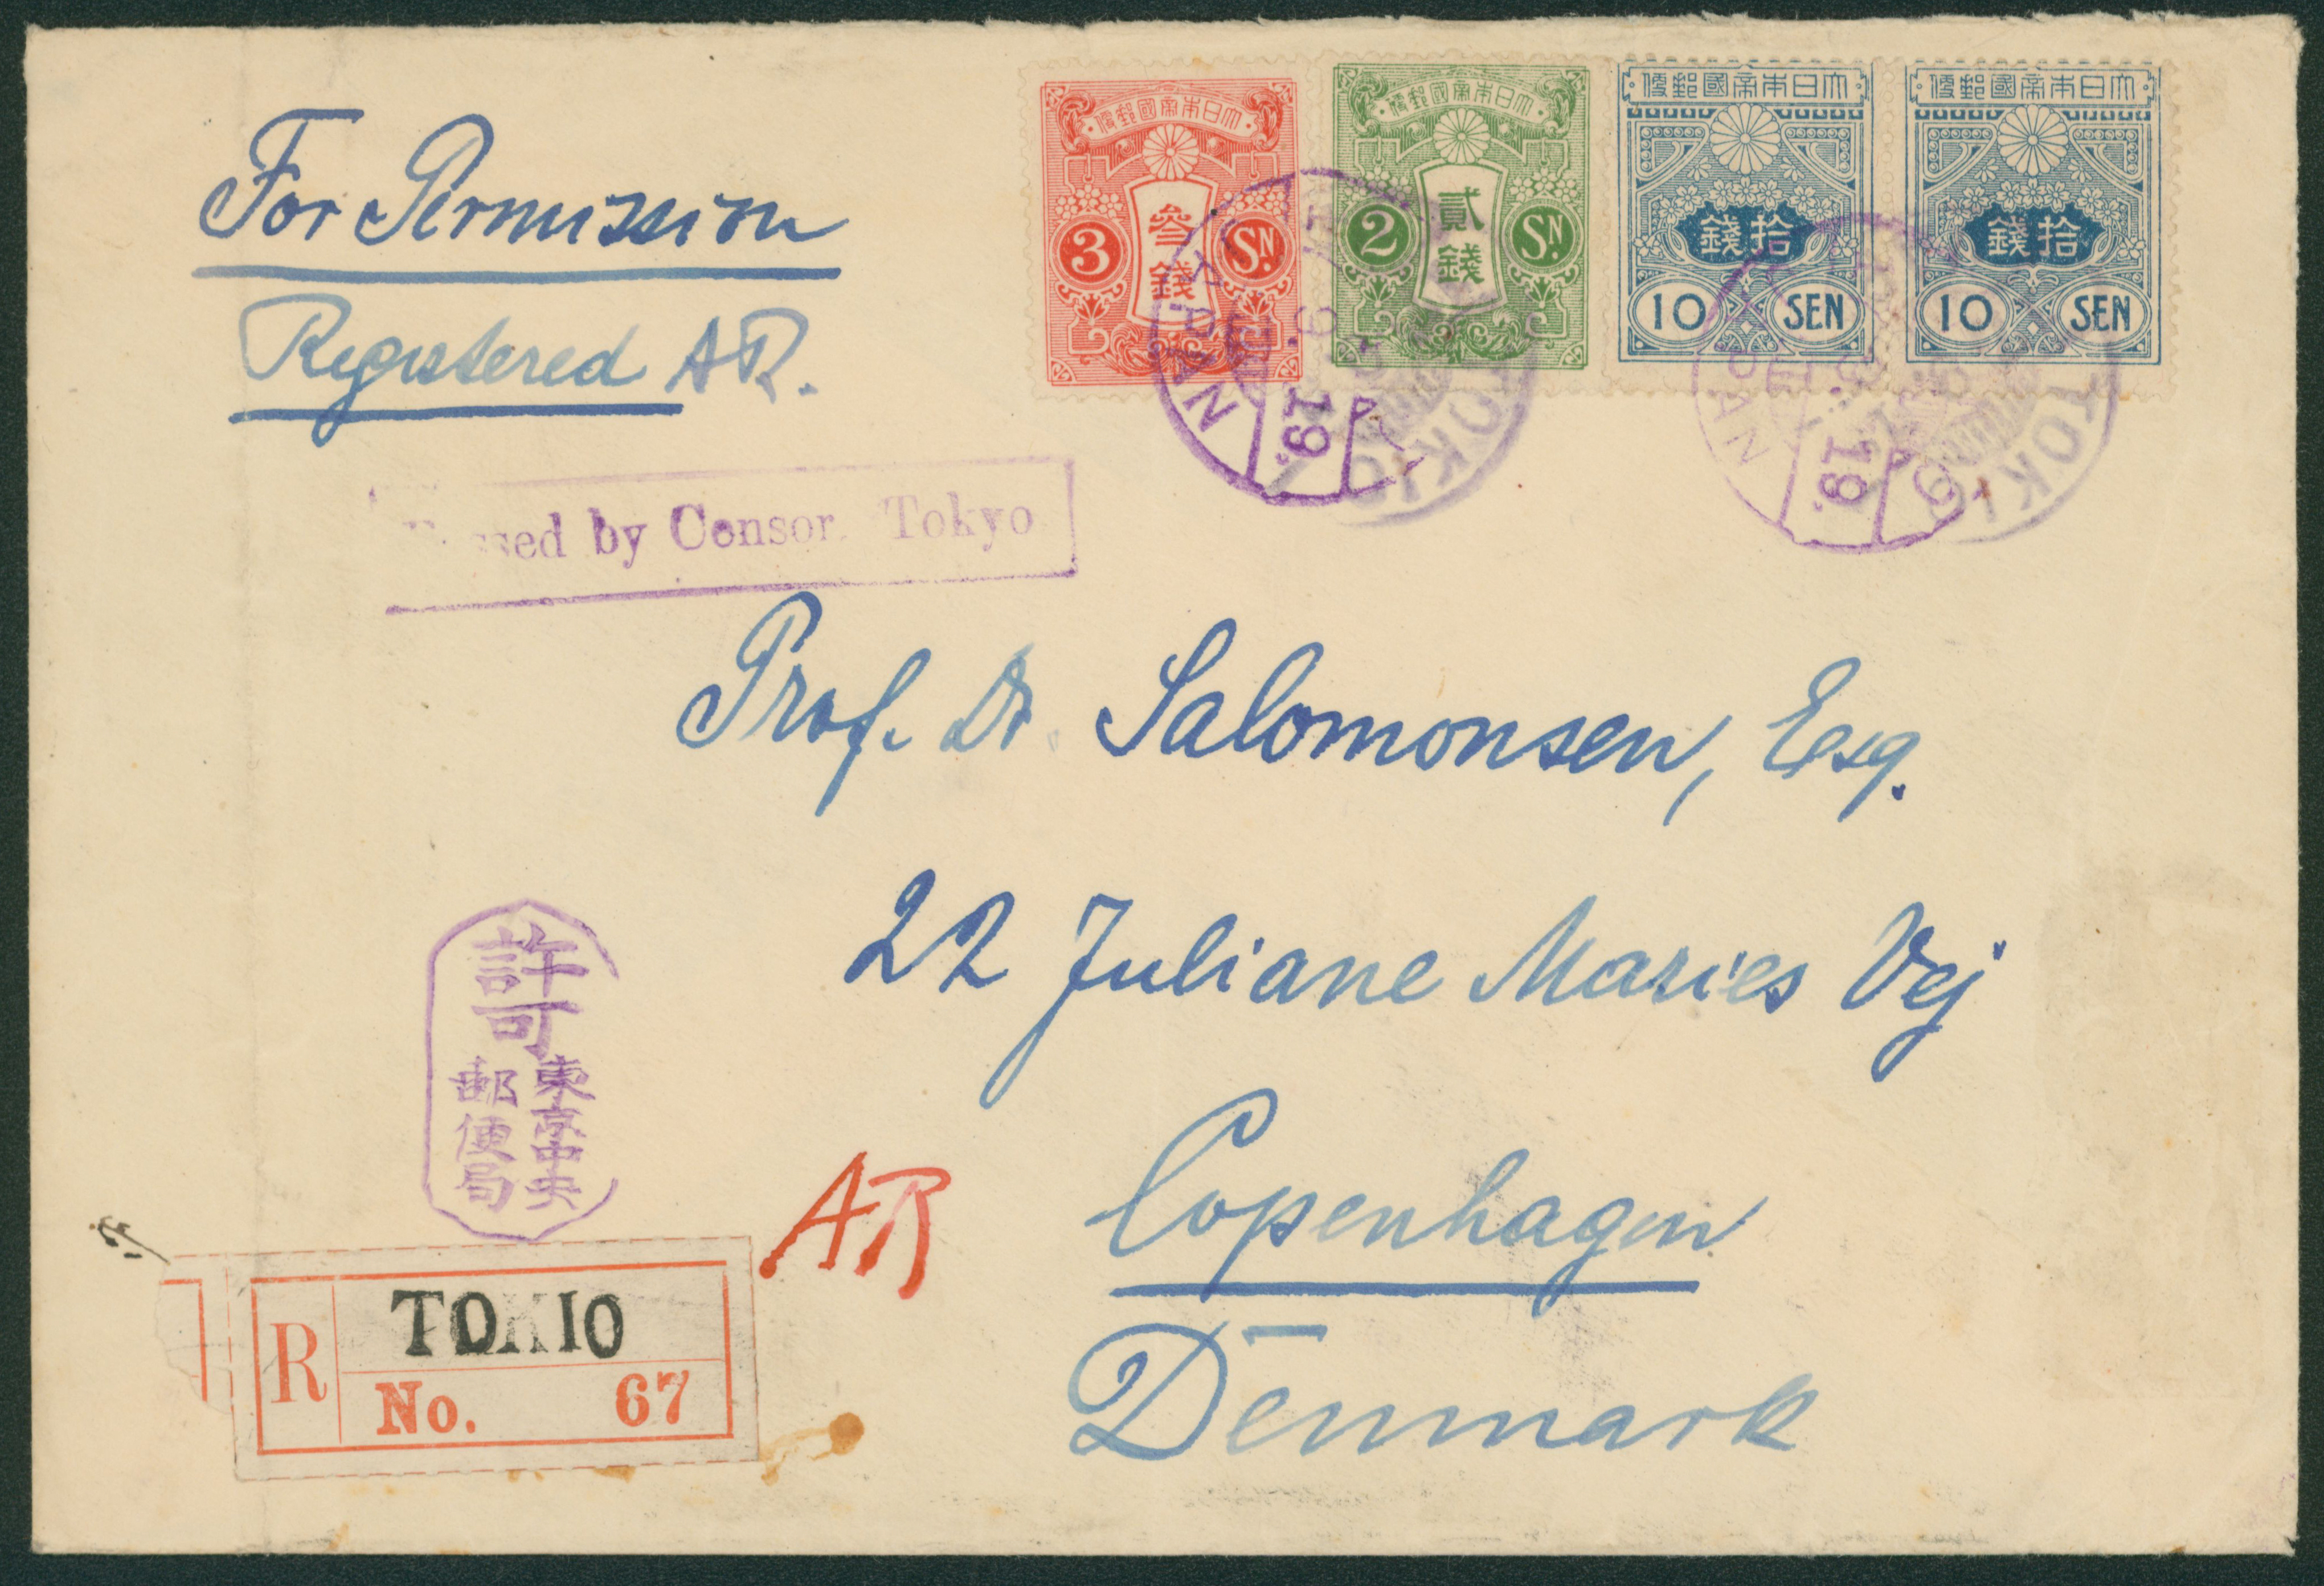 For Permission
Registered AR.
大日本帝國郵便
參錢
3 SN.
大日本帝國郵便
貳錢
2 SN.
大日本帝國郵便
拾錢
10 SEN
大日本帝國郵便
拾錢
10 SEN
JAPAN 19. TOKIO
JAPAN 19. TOKIO
by Censor Tokyo
Prof. Dr. Salomonsen, Esq.
22 Juliane Maries Vej
Copenhagen
Denmark
許可
東京中央
郵便局
AR
R TOKIO
No. 67